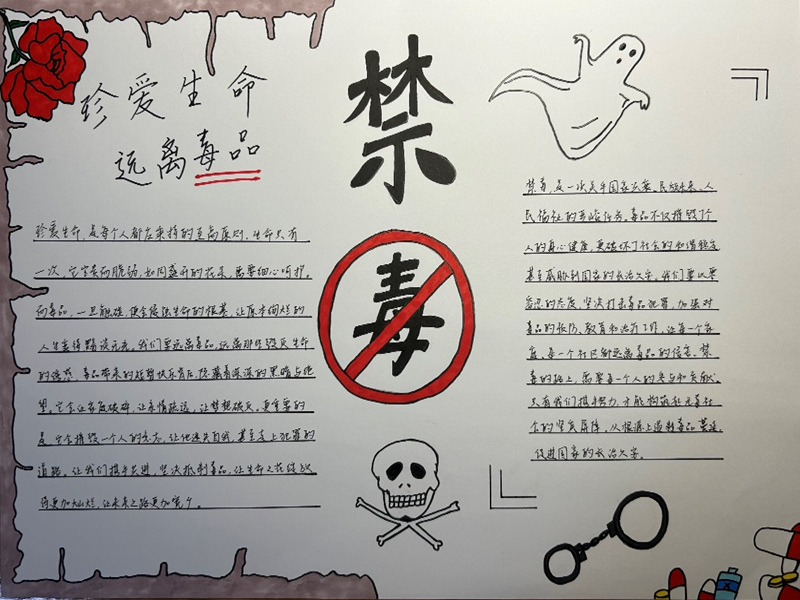 珍爱生命
远离毒品
禁
毒
珍爱生命,是每个人都应秉持的至高原则。生命只有
一次,它宝贵而脆弱,如同盛开的花朵,需要细心呵护。
而毒品,一旦触碰,便会侵蚀生命的根基,让原本绚烂的
人生变得黯淡无光。我们要远离毒品,远离那些毁灭生命
的诱惑。毒品带来的短暂快乐背后,隐藏着深深的黑暗与绝
望。它会让家庭破碎,让亲情疏远,让梦想破灭。更重要的
是,它会摧毁一个人的意志,让他迷失自我,甚至走上犯罪的
道路。让我们携手共进,坚决抵制毒品,让生命之花绽放
得更加灿烂,让未来之路更加宽广。
禁毒,是一次关乎国家安危、民族未来、人
民福祉的重要任务。毒品不仅摧毁了个
人的身心健康,更破坏了社会的和谐稳定
甚至威胁到国家的长治久安。我们要以零
容忍的态度,坚决打击毒品犯罪,加强对
毒品的预防、教育和治疗工作,让每一个家
庭,每一个社区都远离毒品的侵害。禁
毒的路上,需要每一个人的参与和贡献。
只有我们携手努力,才能构筑起无毒社
会的坚实屏障,从根源上遏制毒品蔓延,
促进国家的长治久安。